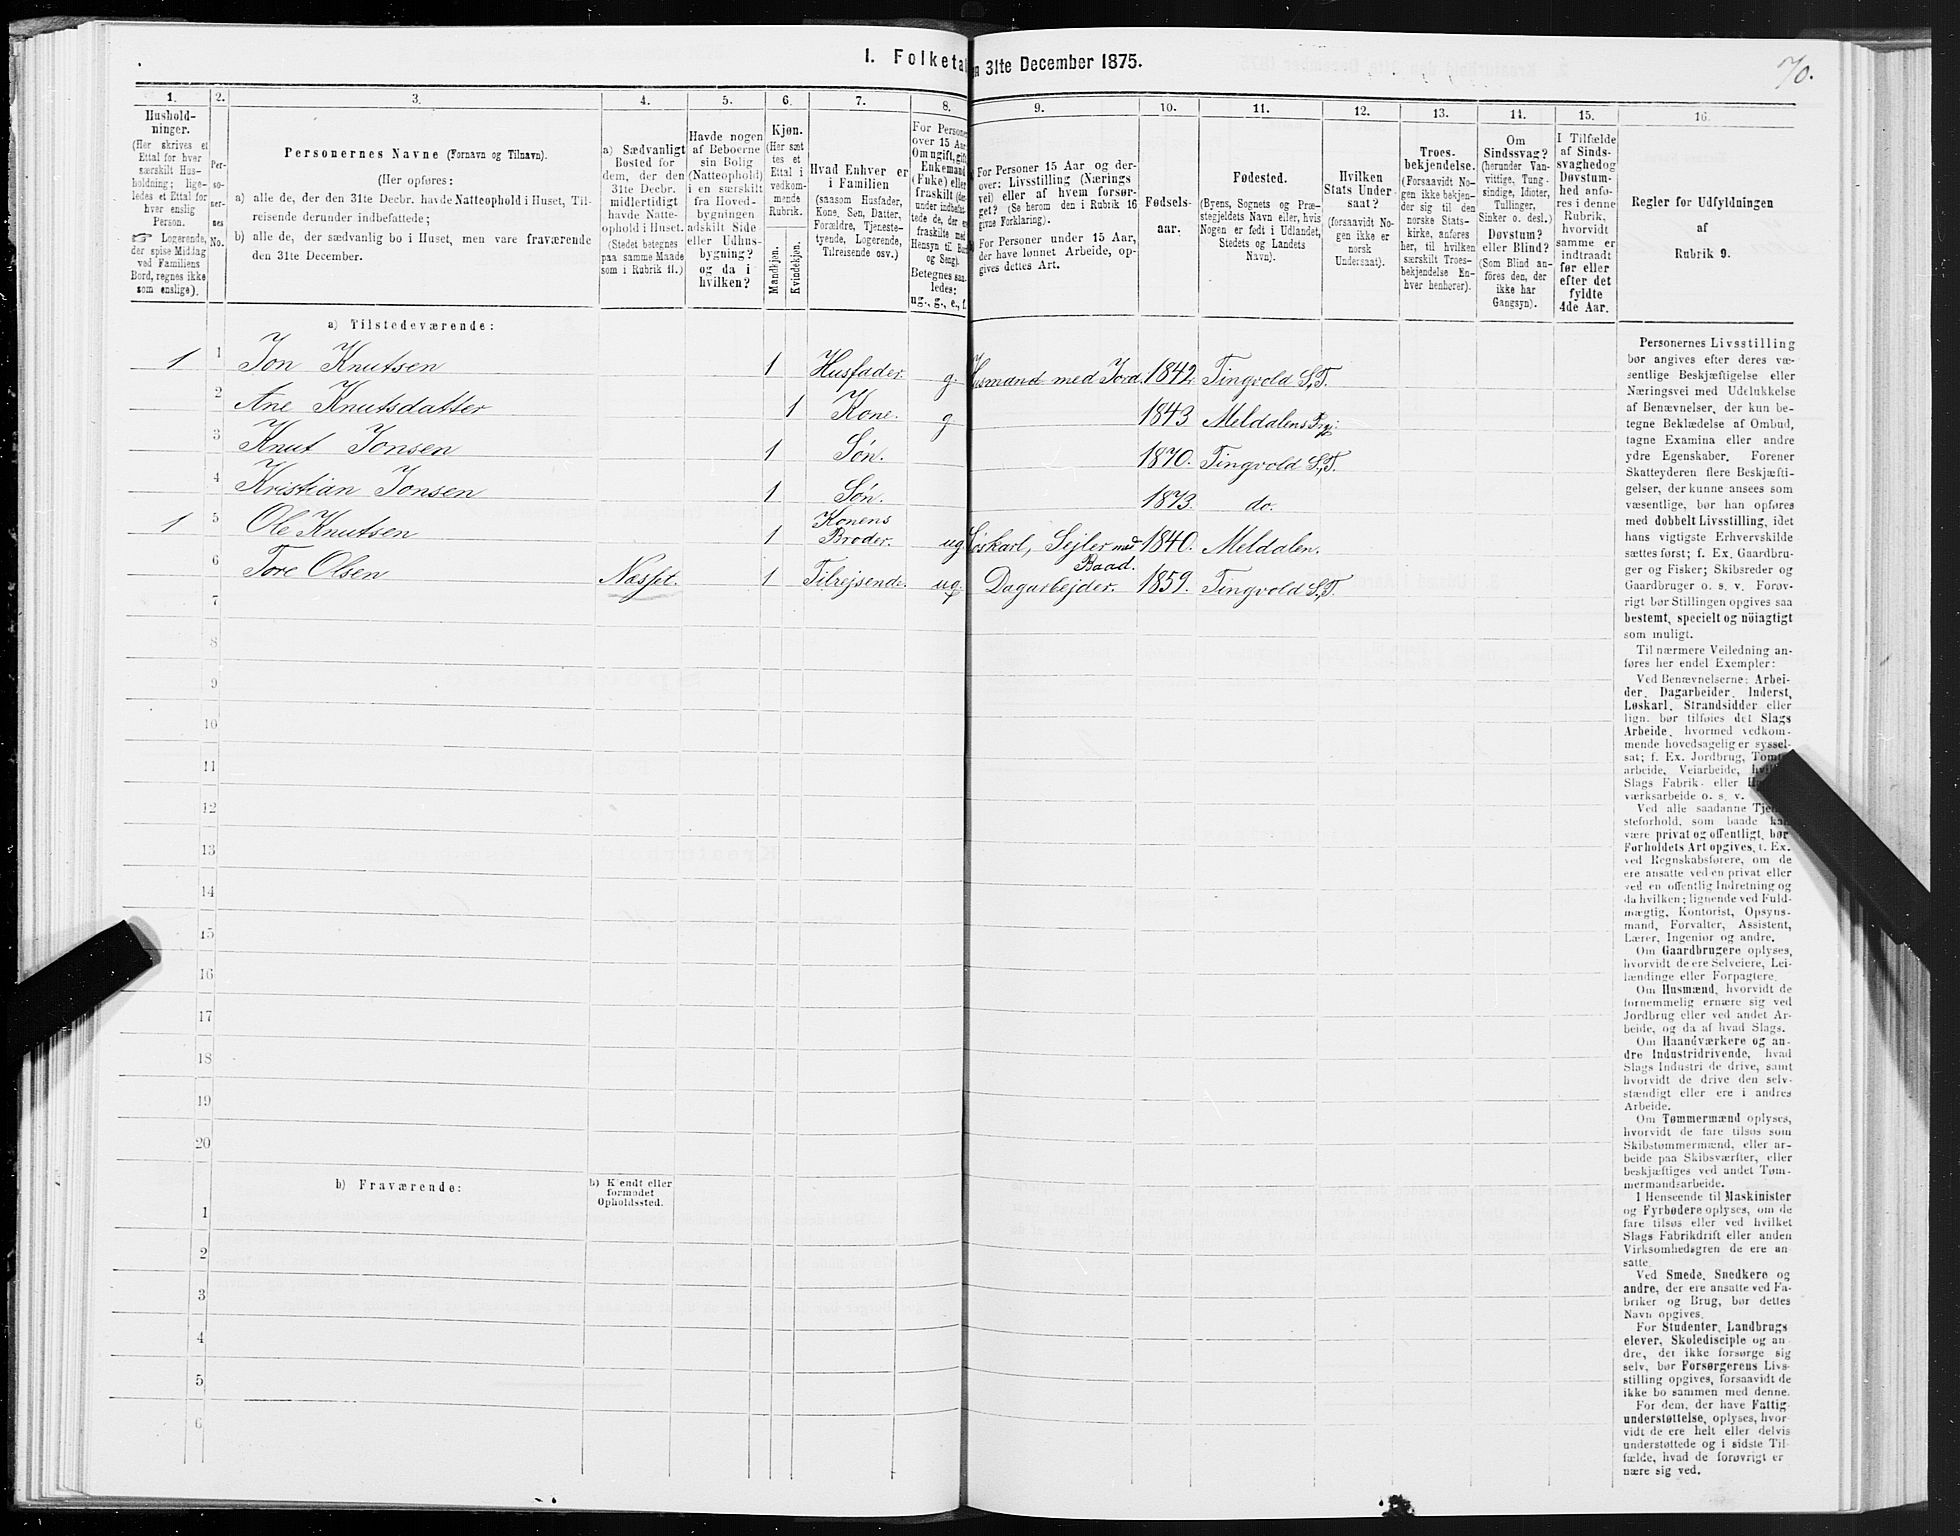 1. Folketal
en 31te December 1875.
70.
1.
2.
3.
4.
5.
6.
7.
8.
9.
10.
11.
12.
13.
14.
15.
16.
Hushold-
ninger.
(Her skrives et
Ettal for hver
særskilt Hus-
holdning; lige-
ledes et Ettal for
hver enslig
Person.
☞ Logerende,
der spise Middag
ved Familiens
Bord, regnes ikke
som enslige).
Per-
so-
ner-
nes
No.
Personernes Navne (Fornavn og Tilnavn).
(Her opføres:
a) alle de, der den 31te Decbr. havde Natteophold i Huset, Til-
reisende derunder indbefattede;
b) alle de, der sædvanlig bo i Huset, men vare fraværende
den 31te December.
a) Sædvanligt
Bosted for
dem, der den
31te Decbr.
midlertidigt
havde Natte-
ophold i Huset.
(Stedet betegnes
paa samme Maade
som i Rubrik 11.)
Havde nogen
af Beboerne
sin Bolig
(Natteophold)
i en særskilt
fra Hoved-
bygningen
adskilt Side
eller Udhus-
bygning?
og da i
hvilken?
Kjøn.
(Her sæt
tes et
Ettal i
vedkom-
mende
Rubrik.
Mandkjøn.
Kvindekjøn.
Hvad Enhver er
i Familien
(saasom Husfader,
Kone, Søn, Datter,
Forældre, Tjeneste-
tyende, Logerende,
Tilreisende osv.)
For Persone
over 15 Aar
Om ugift, gift,
Enkemand
(Enke) eller
fraskilt (der-
under indbefat-
tede de, der er
fraskilte med
Hensyn til Bo
og Seng).
Betegnes saa-
ledes:
ug., g., e., f.
For Personer 15 Aar og der-
over: Livsstilling (Nærings
vei) eller af hvem forsør-
get? (Se herom den i Rubrik 16
givne Forklaring).
For Personer under 15 Aar,
der have lønnet Arbeide, op-
gives dettes Art.
Fødsels-
aar.
Fødested.
(Byens, Sognets og Præ-
stegjeldets Navn eller, hvis
Nogen er født i Udlandet,
Stedets og Landets
Navn).
Hvilken
Stats Under-
saat?
(forsaavidt No-
gen ikke er
norsk
Undersaat).
Troes-
bekjendelse.
(Forsaavidt No-
gen ikke bekjen-
der sig til den
norske Stats-
kirke, anføres
her, til hvilken
særskilt Troes-
bekjendelse En-
hver henhører).
Om
Sindssvag?
(herunder Van-
vittige, Tung-
sindige, Idioter,
Tullinger,
Sinker o. desl.)
Døvstum?
eller Blind?
(Som Blind an-
føres den, der
ikke har
Gangsyn).
I Tilfælde
af Sinds-
svaghed og
Døvstum-
hed anfø-
res i denne
Rubrik,
hvorvidt
samme er
indtraadt
før eller
efter det
fyldte
4de Aar.
Regler for Udfyldningen
af
Rubrik 9.
a) Tilstedeværende:
1 1 Jon Knutsen 1 Husfader. g. Husmand med Jord. 1842. Tingvold S,T.
2 Ane Knutsdatter 1 Kone. g 1843 Meldalens Prgj:
3 Knut Jonsen 1 Søn. 1870. Tingvold S,T.
4 Kristian Jonsen 1 Søn. 1873. do.
1 5 Ole Knutsen 1 Konens
Broder. ug. Løskarl, Sejler med
Baad. 1840. Meldalen.
6 Tore Olsen Næsset. 1 Tilrejsende. ug. Dagarbejder. 1859. Tingvold S,T.
7
8
9
10
11
12
13
14
15
16
17
18
19
20
b) Fraværende:
b) Kjendt eller
formodet
Opholdssted.
1
2
3
4
5
6
Personernes Livsstilling
bør angives efter deres væ-
sentlige Beskjæftigelse eller
Næringsvei med Udelukkelse
af Benævnelser, der kun be-
tegne Beklædelse af Ombud,
tagne Examina eller andre
ydre Egenskaber. Forener
Skatteyderen flere Beskjæfti-
gelser, der kunne ansees som
væsentlige, bør han opføres
med dobbelt Livsstilling, idet
hans vigtigste Erhvervskilde
sættes først; f. Ex. Gaardbru-
ger og Fisker; Skibsreder og
Gaardbruger o. s. v. Forøv-
rigt bør Stillingen opgives saa
bestemt, specielt og nöiagtigt
som muligt.
Til nærmere Veiledning an-
føres her endel Exempler:
Ved Benævnelserne: Arbei-
der, Dagarbeider, Inderst,
Løskarl, Strandsidder eller
lign. bør tilføies det Slags
Arbeide, hvormed vedkom-
mende hovedsagelig er syssel-
sat; f. Ex. Jordbrug, Tomt
arbeide, Veiarbeide, hvil
Slags Fabrik- eller
værksarbeide o. s. v.
Ved alle saadanne Tje
steforhold, som baade kan
være privat og offentligt, bør
Forholdets Art opgives, f. Ex.
ved Regnskabsførere, om de
ere ansatte ved en privat eller
ved en offentlig Indretning og
da hvilken; lignende ved Fuld-
mægtig, Kontorist, Opsyns-
mand, Forvalter, Assistent,
Lærer, Ingeniør og andre.
Om Gaardbrugere oplyses,
hvorvidt de ere Selveiere, Lei-
lændinge eller Forpagtere.
Om Husmænd, hvorvidt de
fornemmelig ernære sig ved
Jordbrug eller ved andet Ar-
beide, og da af hvad Slags.
Om Haandværkere og an-
dre Industridrivende, hvad
Slags Industri de drive, samt
hvorvidt de drive den selv-
stændigt eller ere i andres
Arbeide.
Om Tømmermænd oplyses,
hvorvidt de fare tilsøs som
Skibstømmermænd, eller ar-
beide paa Skibsværfter, eller
beskjæftiges ved andet Tøm-
mermandsarbeide.
I Henseende til Maskinister
og Fyrbødere oplyses, om de
fare tilsøs eller ved hvilket
Slags Fabrikdrift eller anden
Virksomhedsgren de ere an-
satte.
Ved Smede, Snedkere og
andre, der ere ansatte ved Fa-
briker og Brug, bør dettes
Navn opgives.
For Studenter, Landbrugs
elever, Skoledisciple og an-
dre, der ikke forsørge sig
selv, bør Forsørgerens Livs-
stilling opgives, forsaavidt de
ikke bo sammen med denne.
For dem, der have Fattig
understøttelse, oplyses, hvor-
vidt de ere helt eller delvis
understøttede og i sidste Til-
fælde, hvad de forøvrigt er
nære sig ved.